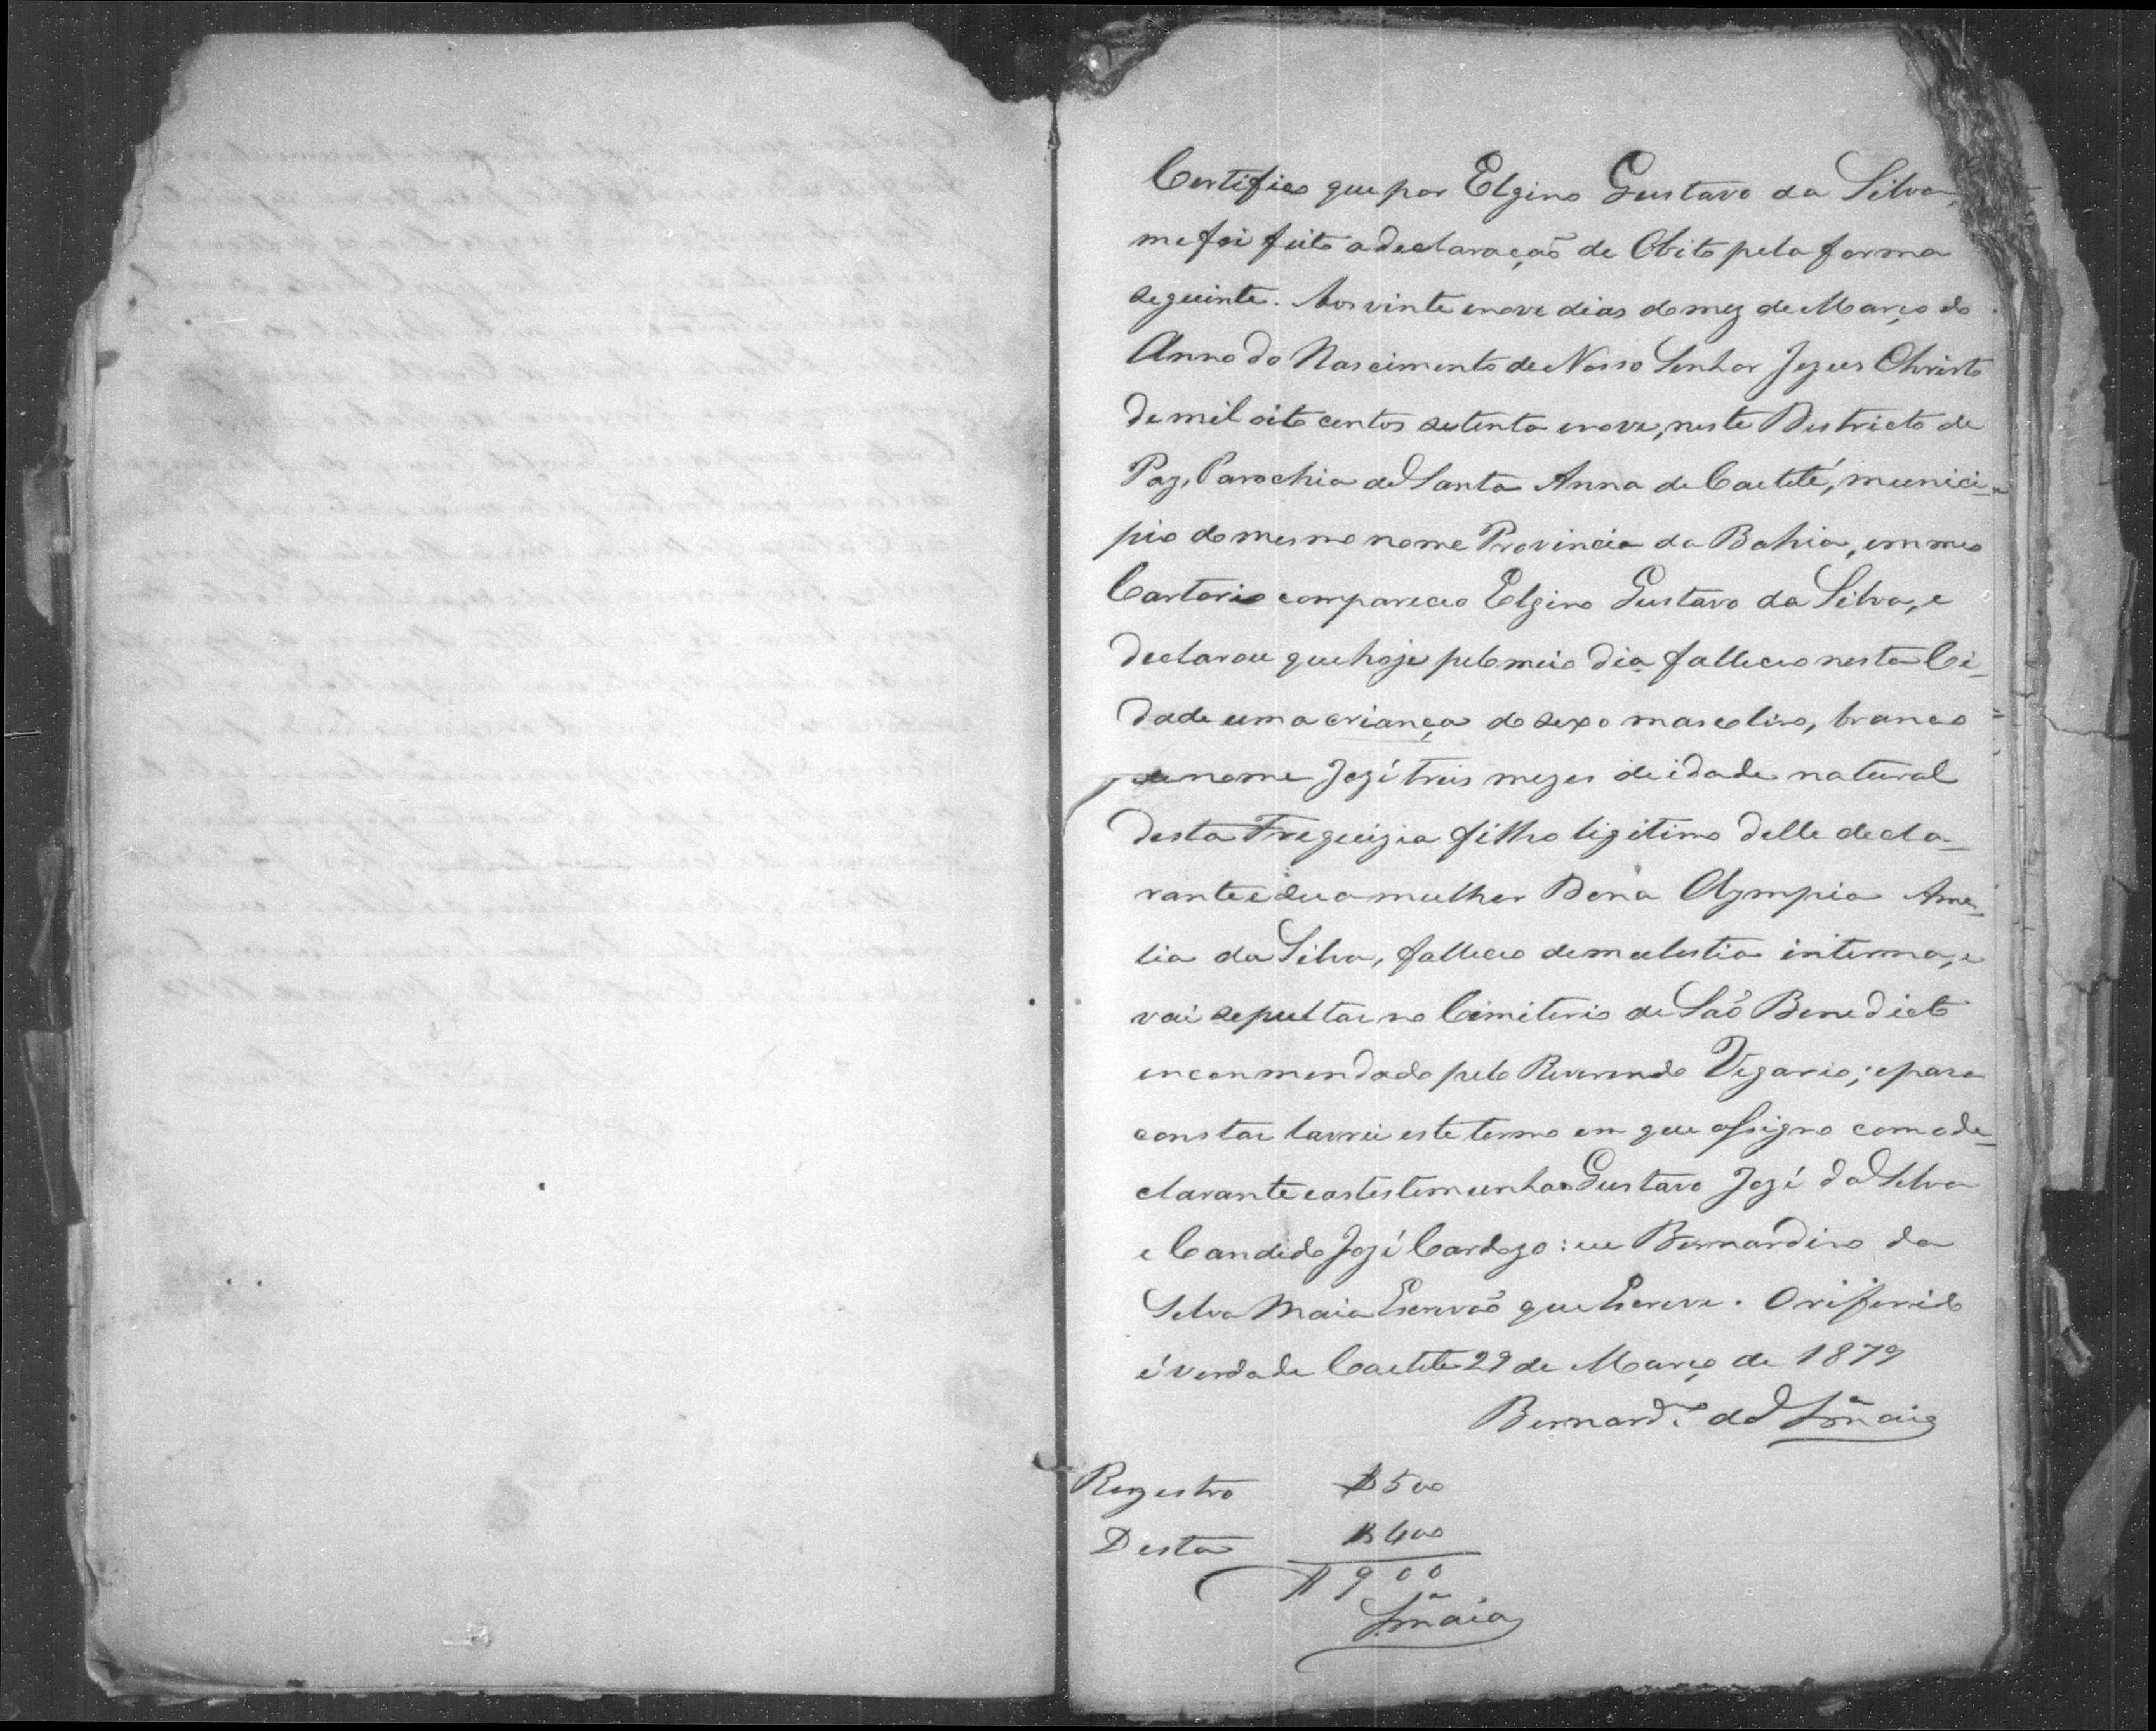 Certifico que por Elgino Gustavo da Silva,
me foi feito a declaração de Obito pela forma
seguinte. Aos vinte e nove dias do mez de Março do
Anno do Nascimento de Nosso Senhor Jezus Christo
de mil oito centos setenta e nove, neste Districto de
Paz, Parochia de Santa Anna de Caetité, munici-
pio do mesmo nome Provincia da Bahia, em meo
Cartorio compareceo Elgino Gustavo da Silva, e
declarou que hoje pelo meio dia falleceo nesta Ci-
dade uma criança do sexo mascolino, branco
de nome Jozé treis mezes de idade natural
desta Freguizia filho ligitimo delle decla-
rante e sua mulher Dona Olympia Ame-
lia da Silva, falleceo de molestia interna, e
vai sepultar no Cimiterio de São Benedicto
encommendado pelo Reverendo Vigario; e para
constar lavrei este termo em que assigno com o de-
clarante e as testemunhas Gustavo Jozé da Silva
e Candido Jozé Cardozo: eu Bernardino da
Silva Maia Escrivão que Escrevi. O riferido
é verdade Caetité 29 de Março de 1879
Bernard.º da S.ª Maia
Registro $500
Desta $400
$900
S.ª Maia